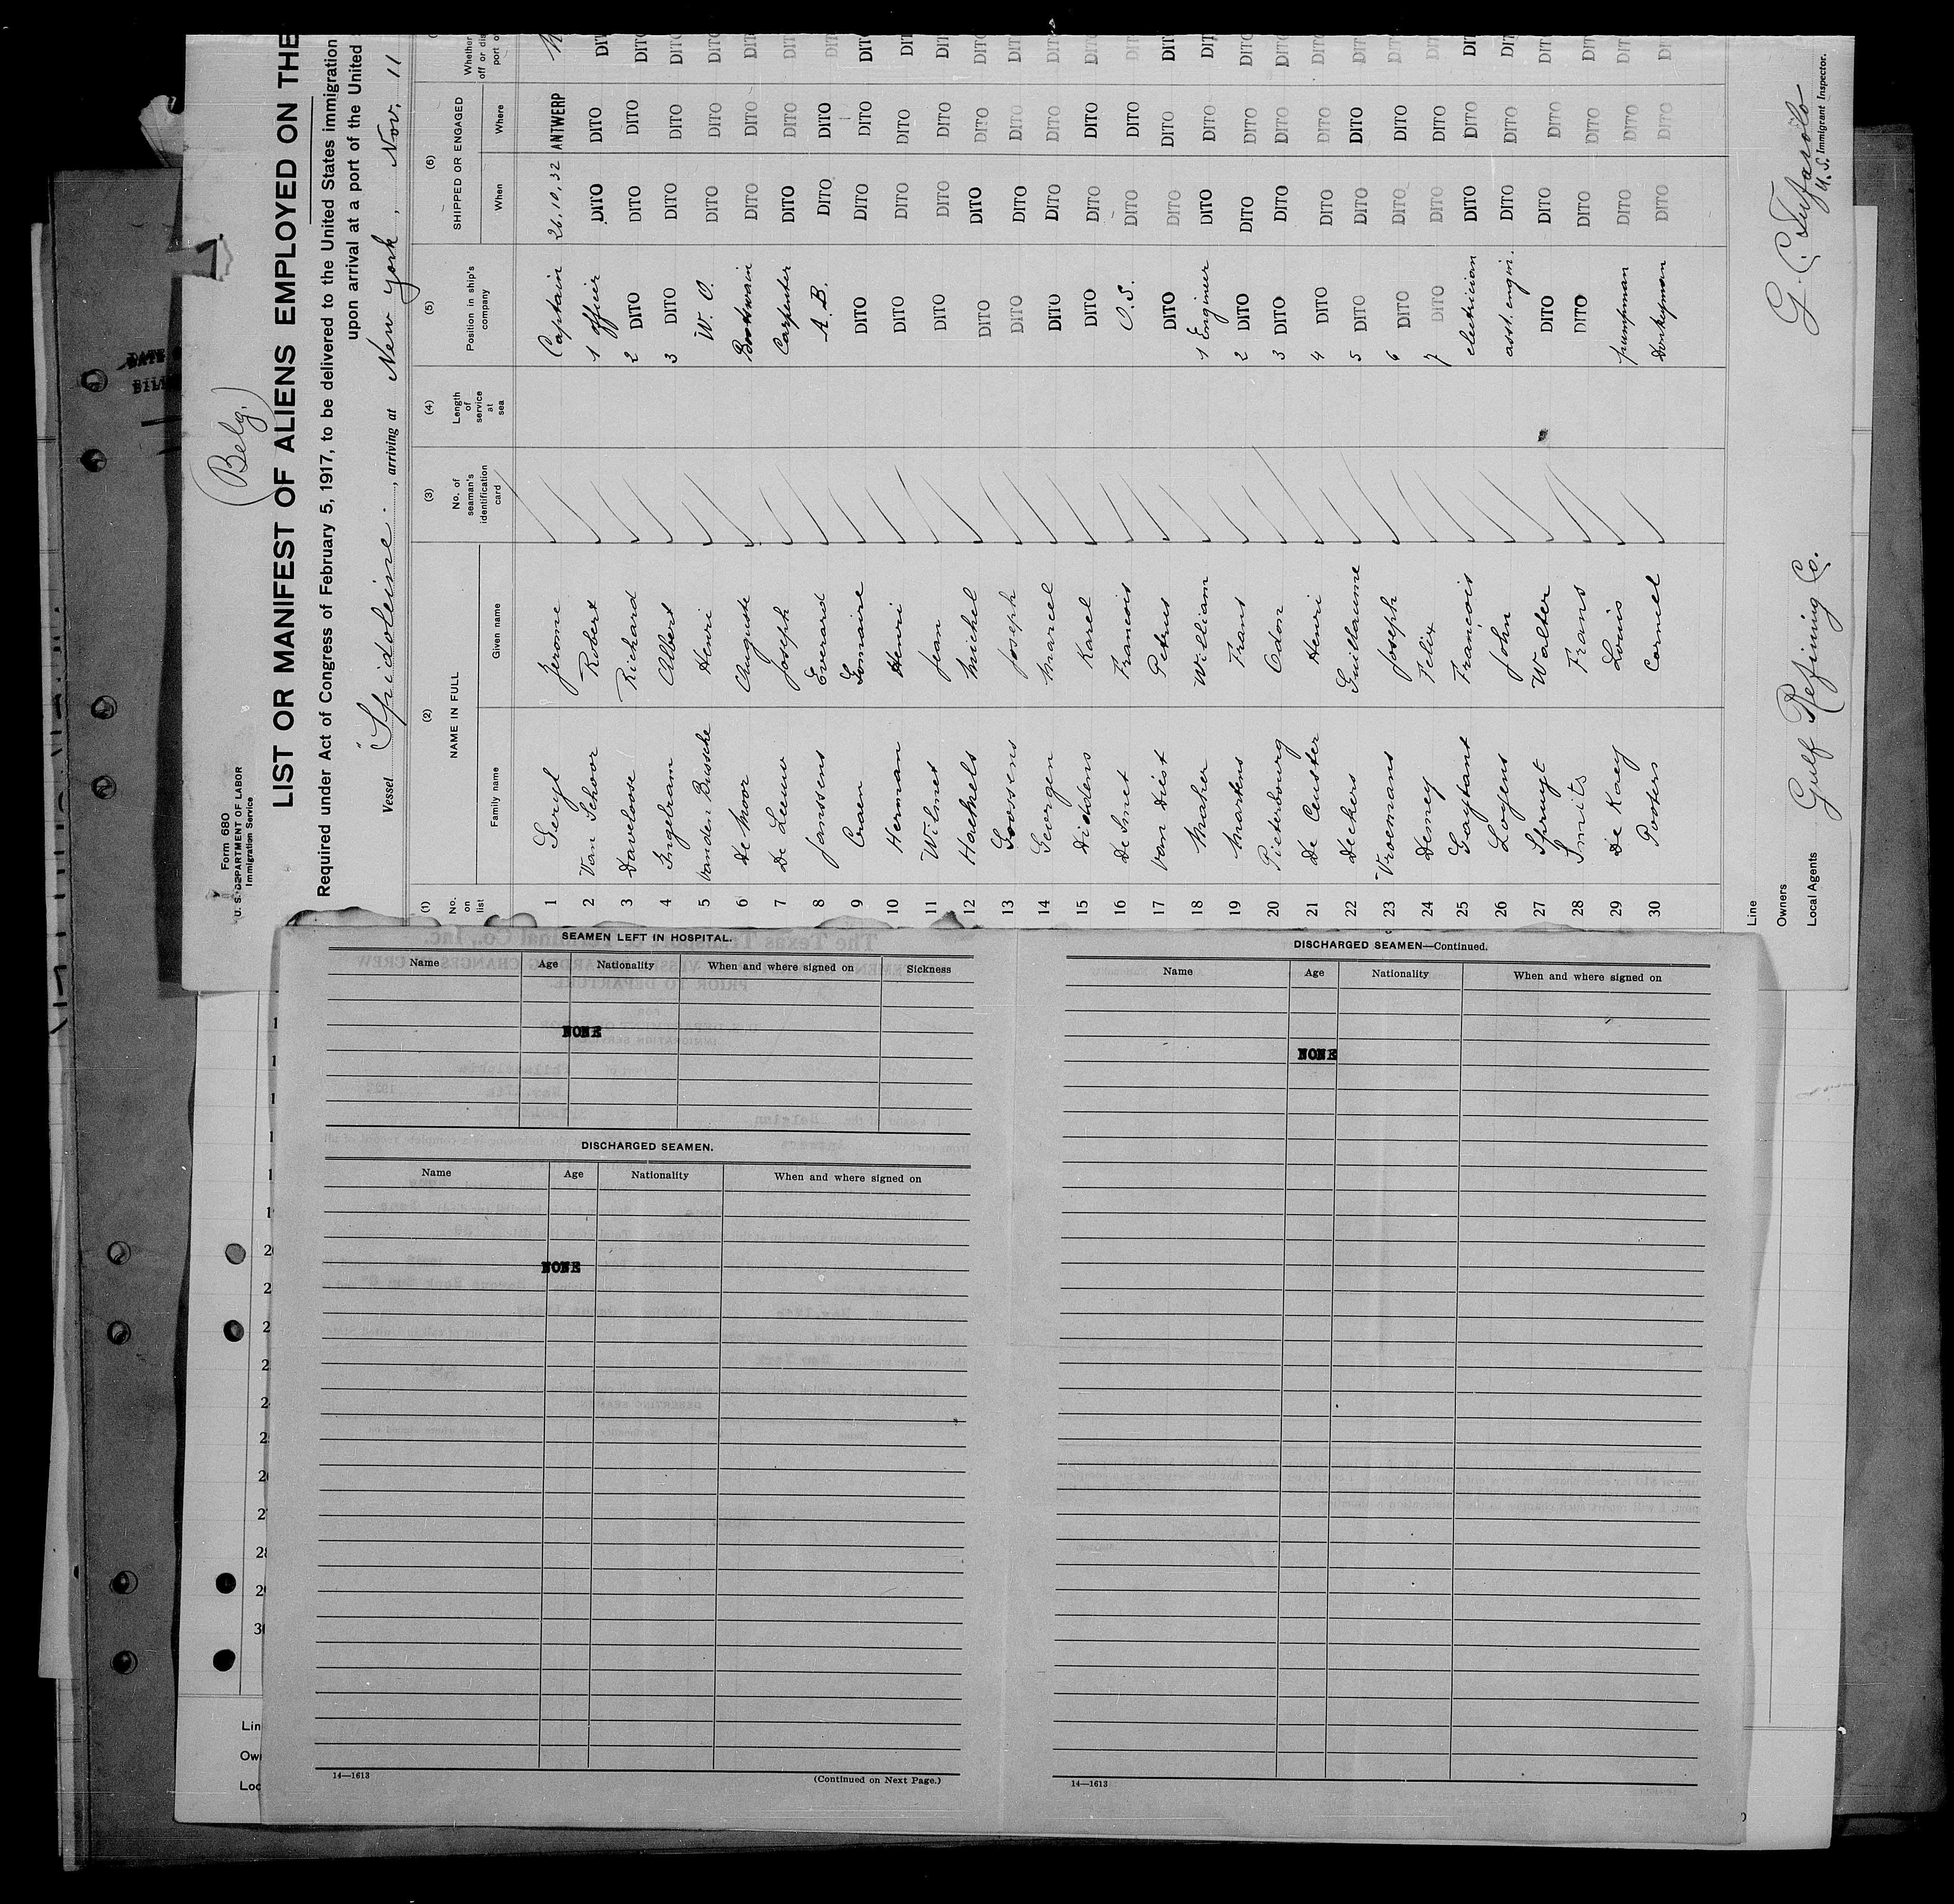 (Belg.)
Form 680
U. S. DEPARTMENT OF LABOR
Immigration Service
LIST OR MANIFEST OF ALIENS EMPLOYED ON THE
Required under Act of Congress of February 5, 1917, to be delivered to the United States immigration
upon arrival at a port of the United
Vessel "Spidoleine", arriving at New York, Nov. 11
(1) (2) (3) (4) (5) (6)
No. on list NAME IN FULL No. of seaman's identification card Length of service at sea Position in ship's company SHIPPED OR ENGAGED Whether
Family name Given name When Where
1 Geryl Jerome Captain 26.10.32 ANTWERP
2 Van Schoor Robert 1 officer DITO DITO DIT
3 Daveloose Richard 2 DITO DITO DITO DITO
4 Ingelram Albert 3 DITO DITO DITO DITO
5 Vanden Bussche Henri W. O. DITO DITO DITO
6 De Moor Auguste Bootswain DITO DITO DIT
7 De Leeuw Joseph Carpenter DITO DITO DIT
8 Janssens Everard A.B. DITO DITO DIT
9 Craen Gomaire DITO DITO DITO DITO
10 Herman Henri DITO DITO DITO DIT
11 Wilmet Jean DITO DITO DITO DIT
12 Haemels Michel DITO DITO DITO DITO
13 Goossens Joseph DITO DITO DITO DIT
14 Georgen Marcel DITO DITO DITO DIT
15 Diddens Karel DITO DITO DITO DITO
16 De Smet Francois O.S. DITO DITO DIT
17 Van Dist Petrus DITO DITO DITO DIT
18 Maher William 1 Engineer DITO DITO DIT
19 Martens Frans 2 DITO DITO DITO DITO
20 Pieterbourg Odon 3 DITO DITO DITO DITO
21 De Ceuster Henri 4 DITO DITO DITO DITO
22 Deckers Guillaume 5 DITO DITO DITO DIT
23 Vroemans Joseph 6 DITO DITO DITO DITO
24 Demey Felix 7 DITO DITO DITO DITO
25 Gaytant Francois electrician DITO DITO DIT
26 Loyens John asst. engin. DITO DITO DIT
27 Spruyt Walter DITO DITO DITO DIT
28 Smits Frans DITO DITO DITO DIT
29 De Kaey Louis pumpman DITO DITO DIT
30 Posters Cornel donkeyman DITO DITO DIT
Line
Owners
Local Agents Gulf Refining Co.
U. S. Immigrant Inspector.
SEAMEN LEFT IN HOSPITAL.
Name Age Nationality When and where signed on Sickness
NONE
DISCHARGED SEAMEN.
Name Age Nationality When and where signed on
NONE
14—1613 (Continued on Next Page.)
DISCHARGED SEAMEN—Continued.
Name Age Nationality When and where signed on
NONE
14—1613